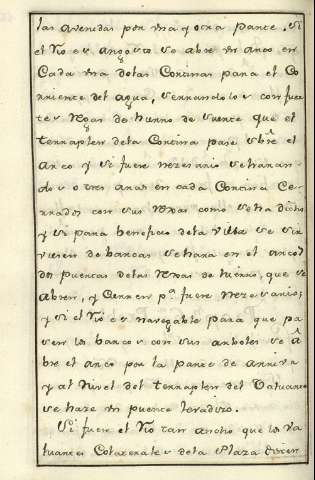 las avenidas por una y otra parte, si
el Rio es angosto se abre un arco en
Cada una de las Cortinas para el Co
rriente del agua, serrandolos con fuer
tes Rejas de hierro de suerte que el
terraplen de la Cortina pase sbre el
arco y si fuere nezesario se haran
dos o tres arcos en cada Cortina Ce
rrados con sus Rexas como se ha dicho
y si para beneficio de la villa se sir
viesen de barcas se hara en el arco
dos puertas de las Rexas de hierro, que se
abren, y Cierren pª fuere nezesario;
y si el Rio es navegable para que pa
sen los barcos con sus arboles se â
bre el arco por la parte de arriva
y al nivel del terraplen del Valuarte
se haze un puente levadizo.
Si fuere el Rio tan ancho que los va
luartes Colaterales de la Plaza